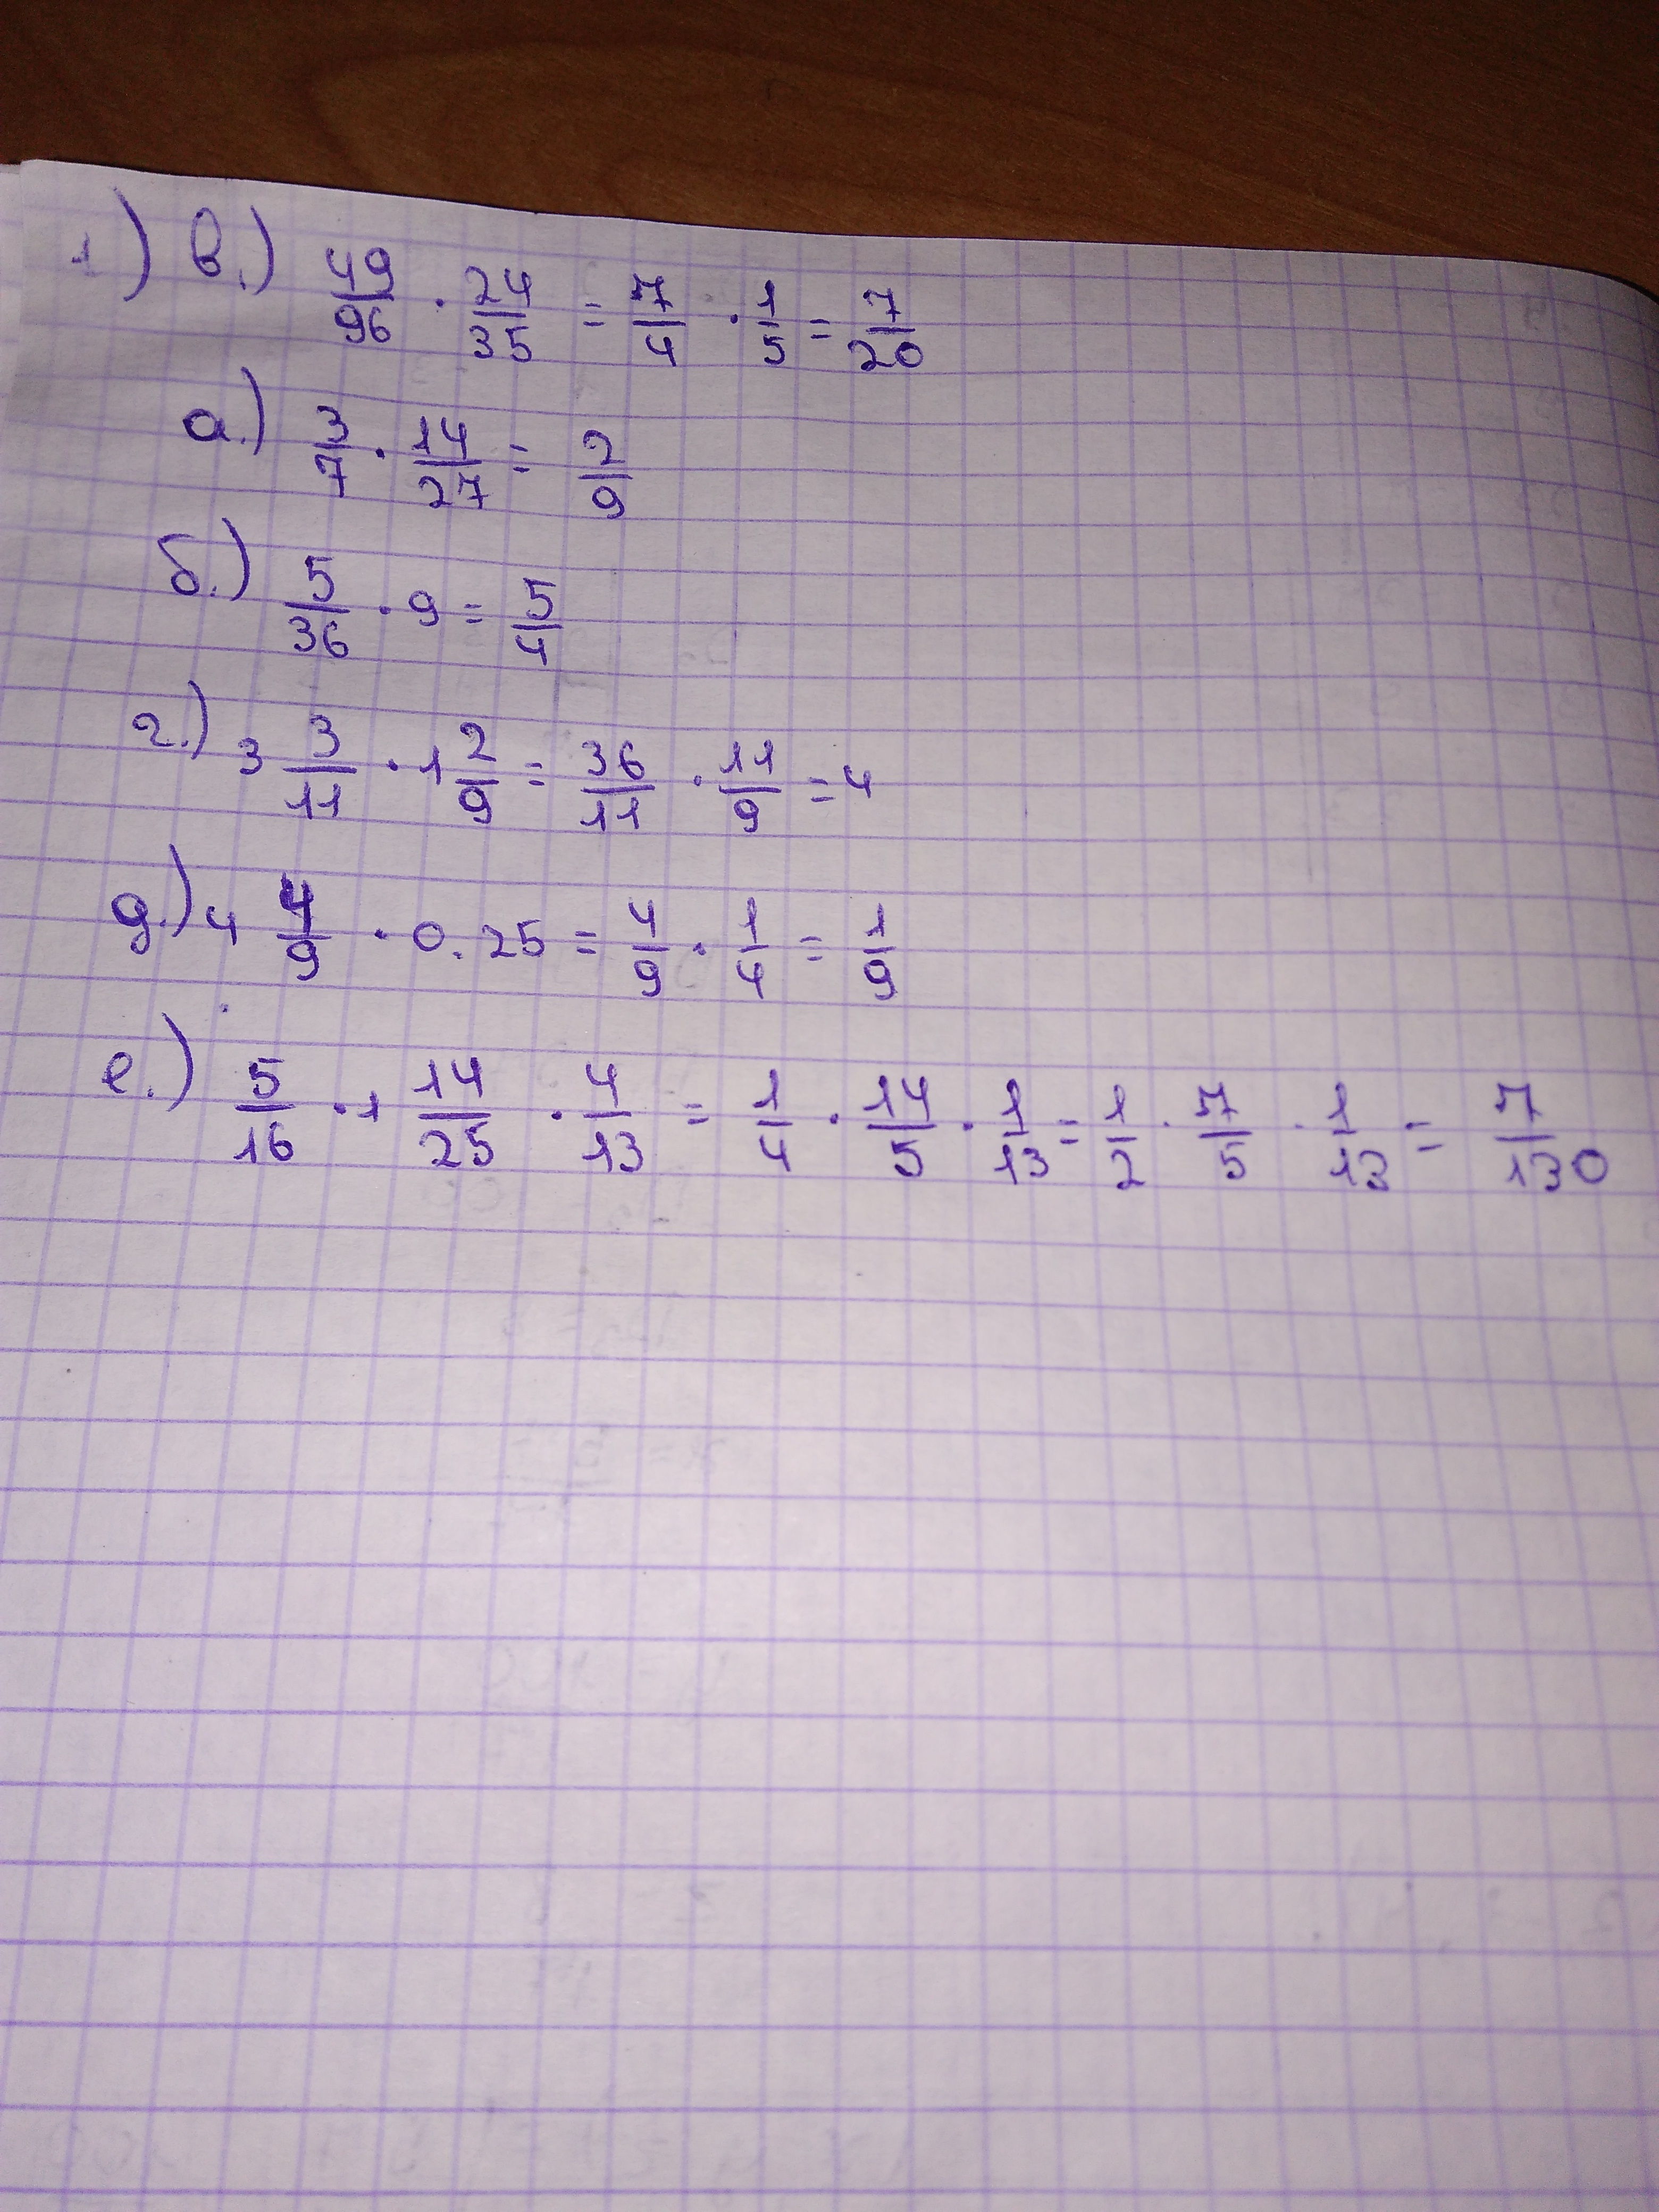 1.) в.) 49/96 · 24/35 = 7/4 · 1/5 = 7/20
а.) 3/7 · 14/27 = 2/9
б.) 5/36 · 9 = 5/4
г.) 3 3/11 · 1 2/9 = 36/11 · 11/9 = 4
д.) 4 4/9 · 0.25 = 4/9 · 1/4 = 1/9
е.) 5/16 · 1 14/25 · 4/13 = 1/4 · 14/5 · 1/13 = 1/2 · 7/5 · 1/13 = 7/130